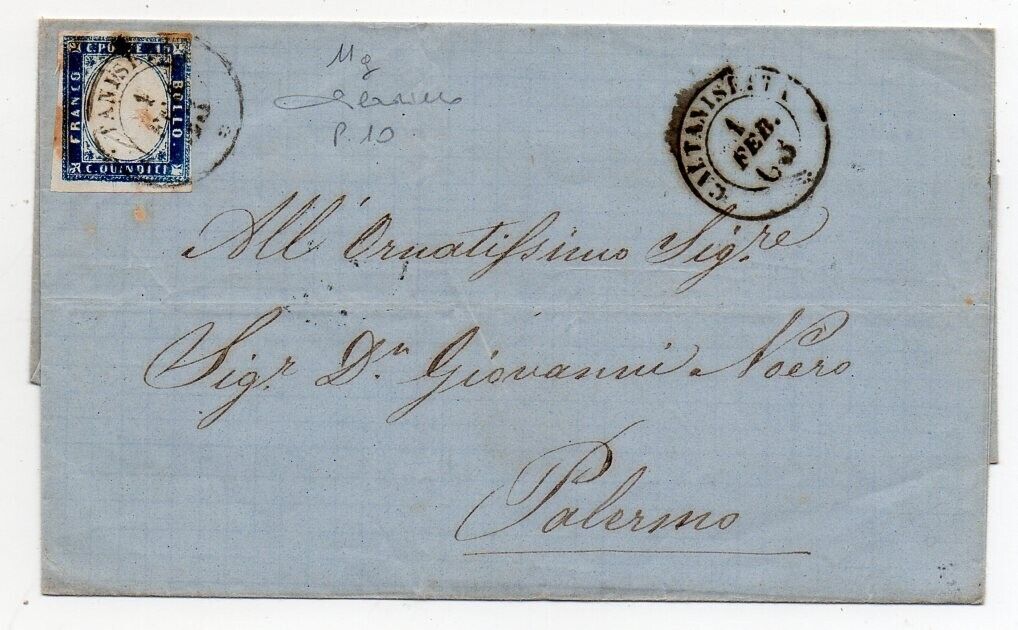 C. POSTE 15
FRANCO
BOLLO
C. QUINDICI
TANIS
1
P. 10
CALTANISETTA
1
FEB.
63
All' Ornatissimo Sigre
Sigr Dn Giovanni Noero
Palermo